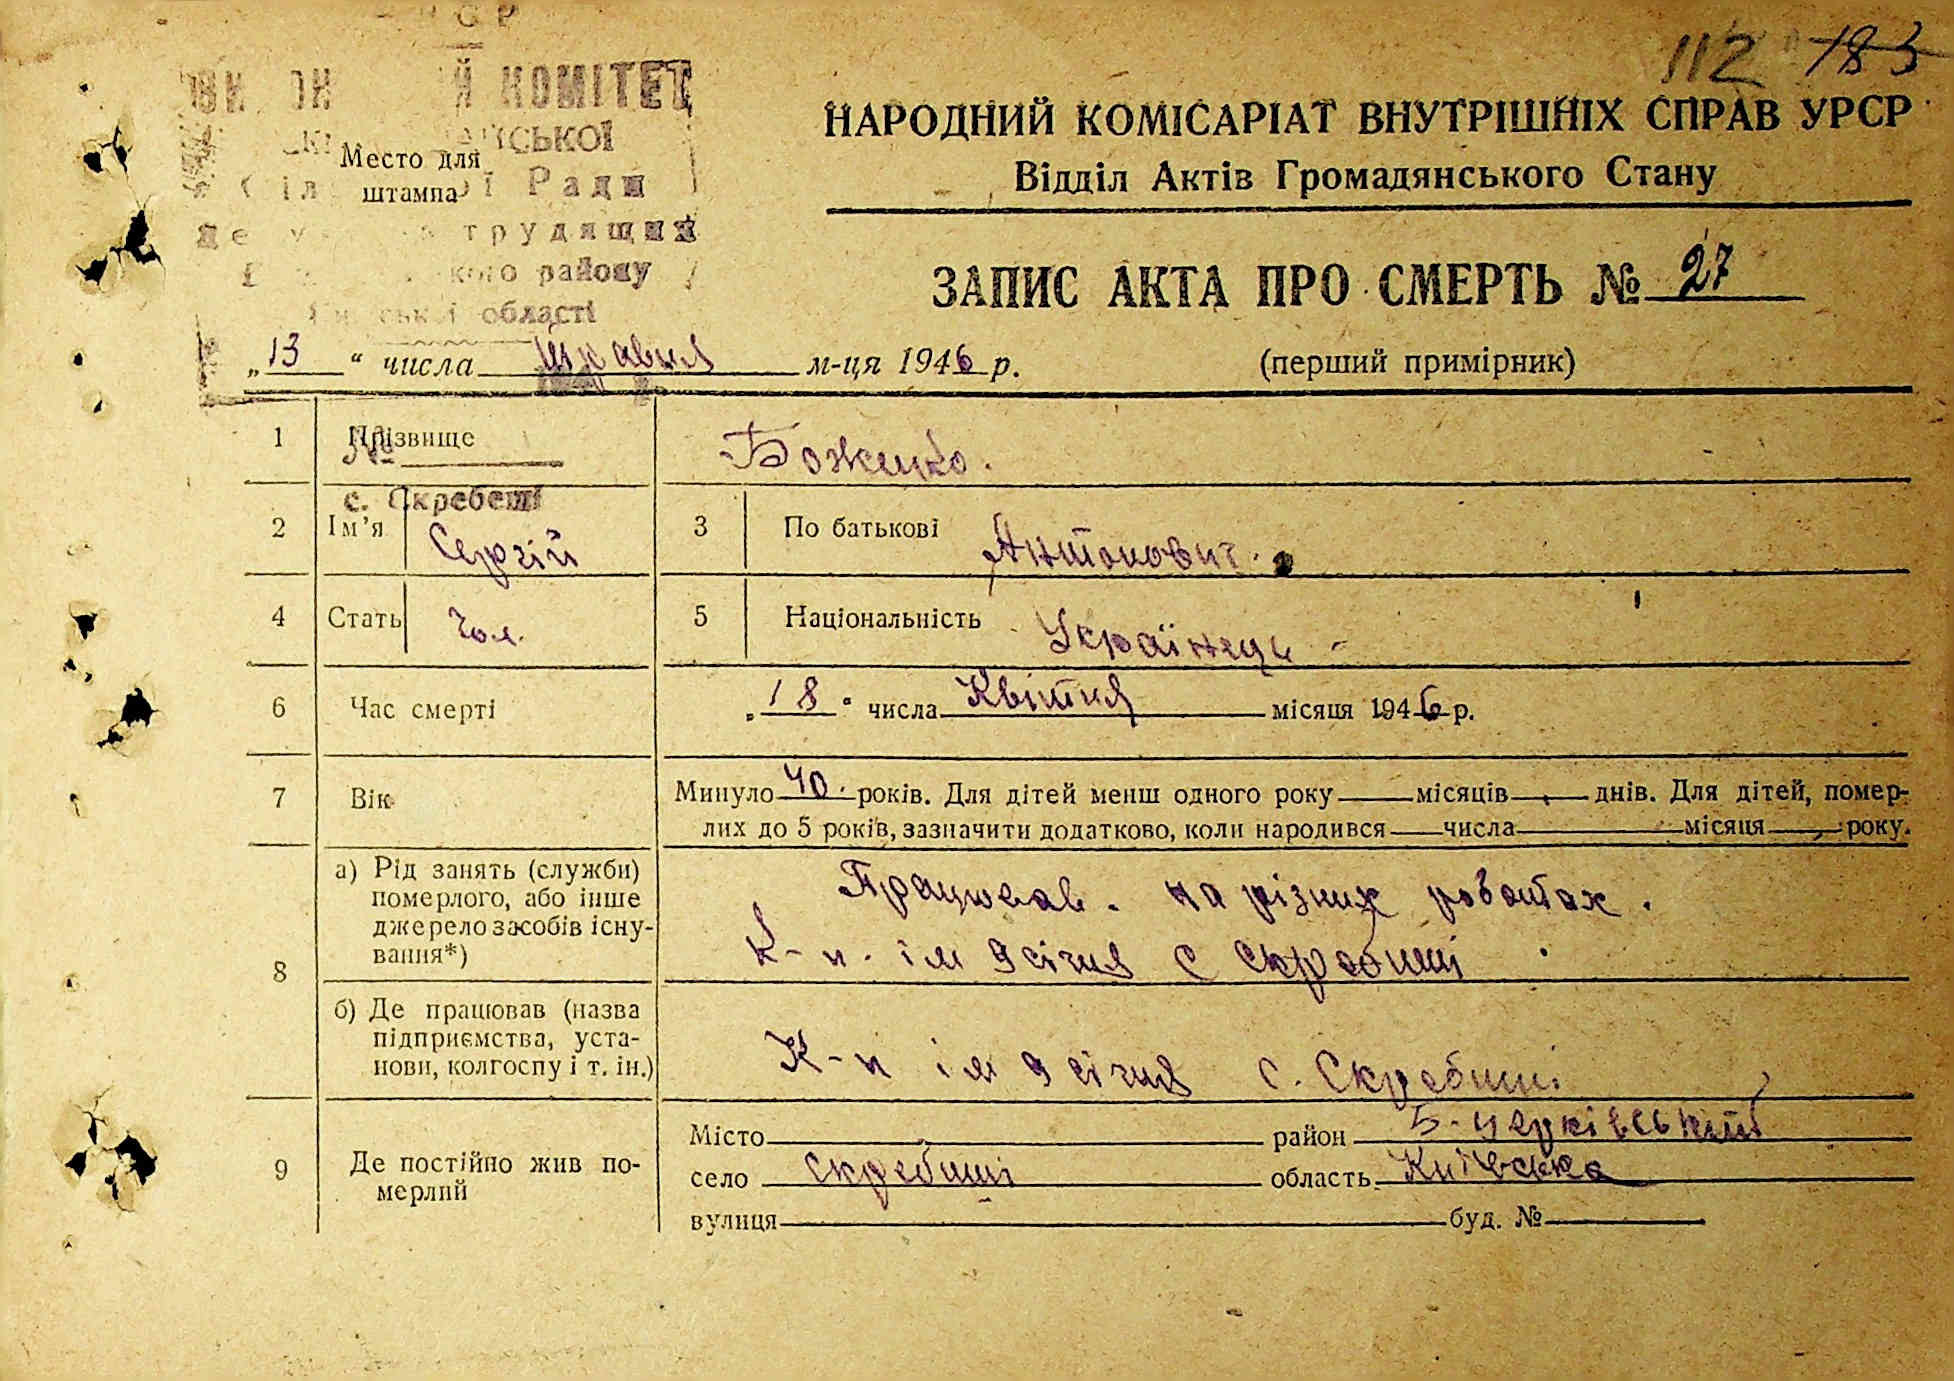 112 183
КОМІТЕТ
Место для
штампа
Ради
трудящих
району
області
НАРОДНИЙ КОМІСАРІАТ ВНУТРІШНІХ СПРАВ УРСР
Відділ Актів Громадянського Стану
ЗАПИС АКТА ПРО СМЕРТЬ № 27
„13“ числа травня м-ця 1946 р.
(перший примірник)
1 Прізвище Боженко.
№
с. Скребеші
2 Ім’я Сергій 3 По батькові Антонович.
4 Стать Чол. 5 Національність Українець
6 Час смерті „18“ числа Квітня місяця 1946 р.
7 Вік Минуло 40. років. Для дітей менш одного року місяців днів. Для дітей, помер-
лих до 5 років, зазначити додатково, коли народився числа місяця року.
8
а) Рід занять (служби)
померлого, або інше
джерело засобів існу-
вання*)
Працював. на різних роботах.
К-п. ім 9 січня с Скребиші
б) Де працював (назва
підприємства, уста-
нови, колгоспу і т. ін.)
К-п ім 9 січня с. Скребиші
9 Де постійно жив по-
мерлий
Місто район Б-церківський
село Скребиші область Київська
вулиця буд. №